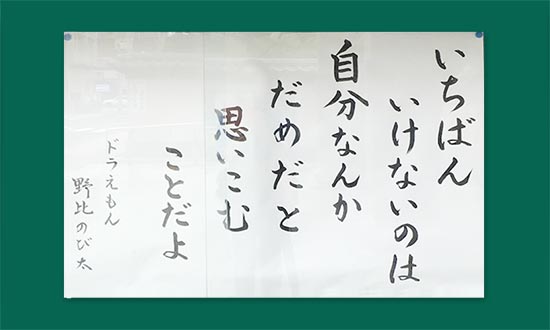 いちばん
いけないのは
自分なんか
だめだと
思いこむ
ことだよ
ドラえもん
野比のび太